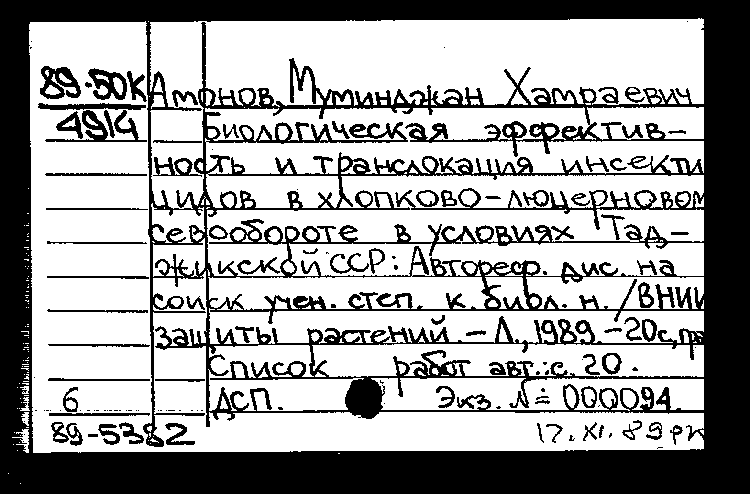 89-50К Амонов, Муминджан Хамраевич
4914 Биологическая эффектив-
ность и транслокация инсекти
цидов в хлопково-люцерновом
севообороте в условиях Тад-
жикской ССР: Автореф. дис. на
соиск учен. степ. к. биол. н. /ВНИИ
защиты растений. - Л., 1989. - 20с,
Список работ авт.: с. 20.
6 ДСП. Экз. № 000094.
89-5382 17.XI.89